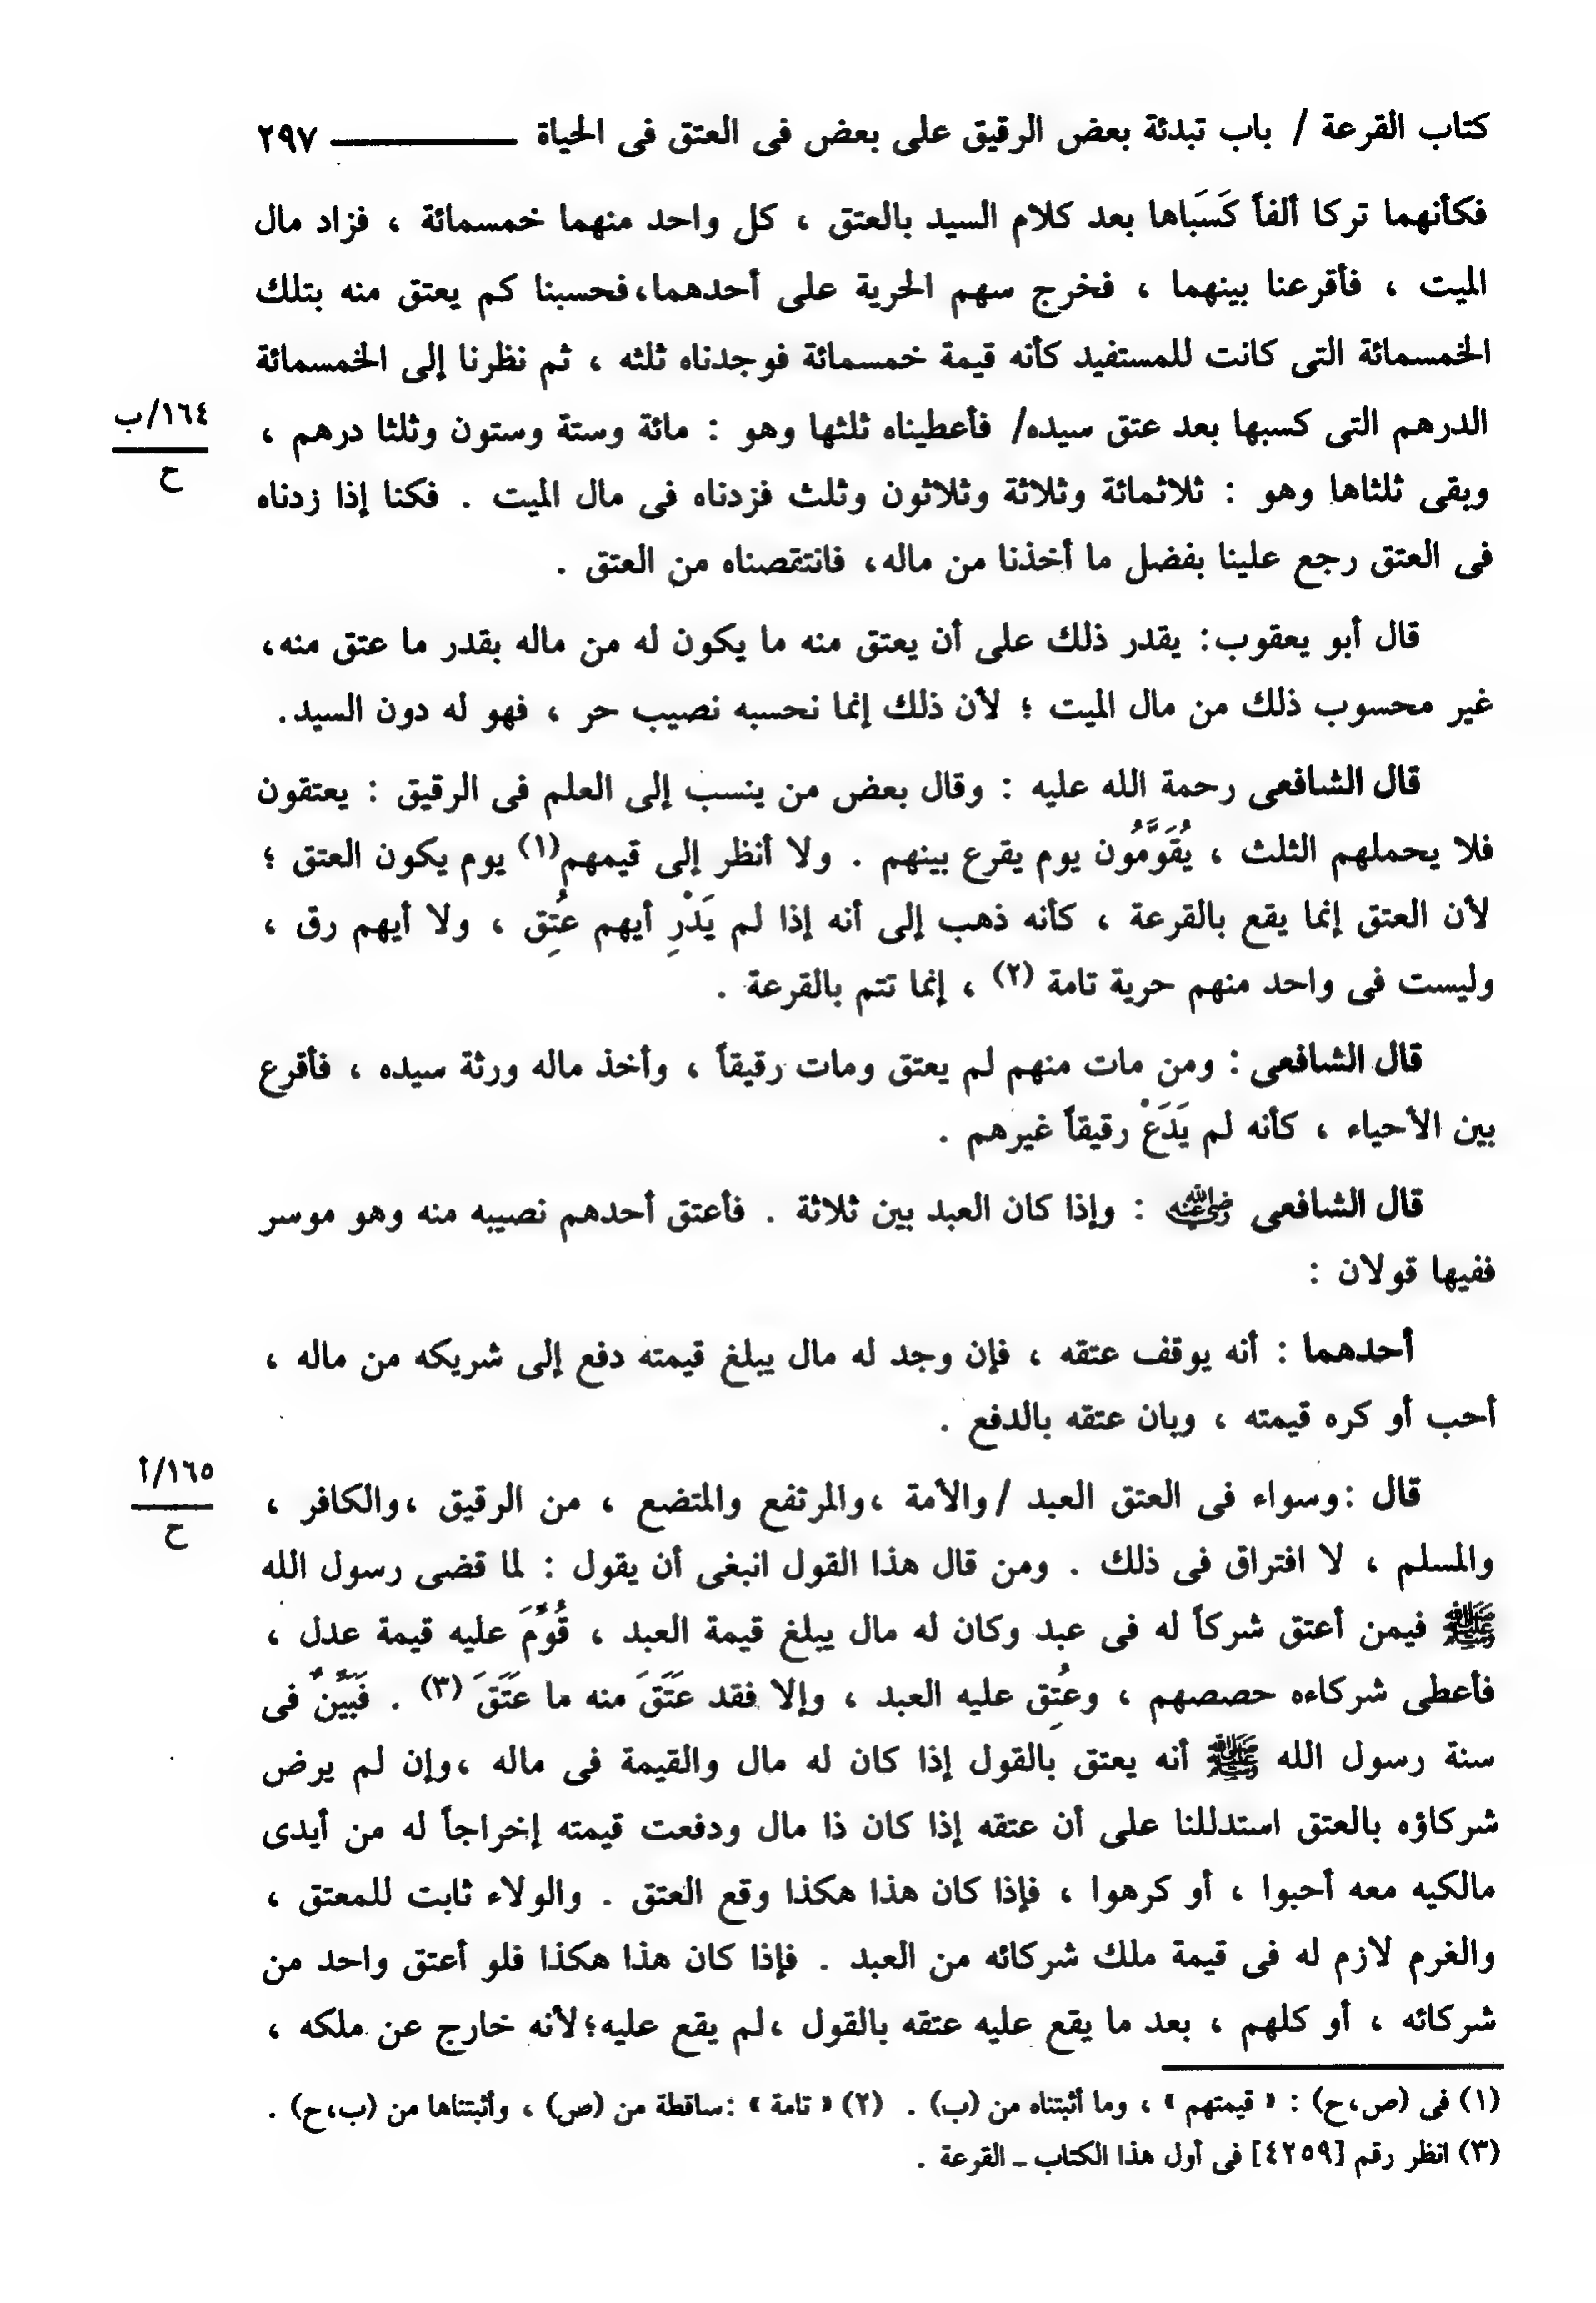 كتاب القرعة / باب تبدئة بعض الرقيق على بعض فى العتق فى الحياة ـــــــــــ ٢٩٧
فكأنهما تركا ألفاً كَسَباها بعد كلام السيد بالعتق ، كل واحد منهما خمسمائة ، فزاد مال
الميت ، فأقرعنا بينهما ، فخرج سهم الحرية على أحدهما،فحسبنا كم يعتق منه بتلك
الخمسمائة التى كانت للمستفيد كأنه قيمة خمسمائة فوجدناه ثلثه ، ثم نظرنا إلى الخمسمائة
الدرهم التى كسبها بعد عتق سيده/ فأعطيناه ثلثها وهو : مائة وستة وستون وثلثا درهم ،
١٦٤/ب
ح
وبقى ثلثاها وهو : ثلاثمائة وثلاثة وثلاثون وثلث فزدناه فى مال الميت . فكنا إذا زدناه
فى العتق رجع علينا بفضل ما أخذنا من ماله، فانتقصناه من العتق .
قال أبو يعقوب: يقدر ذلك على أن يعتق منه ما يكون له من ماله بقدر ما عتق منه،
غير محسوب ذلك من مال الميت ؛ لأن ذلك إنما نحسبه نصيب حر ، فهو له دون السيد.
قال الشافعى رحمة الله عليه : وقال بعض من ينسب إلى العلم فى الرقيق : يعتقون
فلا يحملهم الثلث ، يُقَوَّمُون يوم يقرع بينهم . ولا أنظر إلى قيمهم(١) يوم يكون العتق ؛
لأن العتق إنما يقع بالقرعة ، كأنه ذهب إلى أنه إذا لم يَدْرِ أيهم عُتِق ، ولا أيهم رق ،
وليست فى واحد منهم حرية تامة (٢) ، إنما تتم بالقرعة .
قال الشافعى : ومن مات منهم لم يعتق ومات رقيقاً ، وأخذ ماله ورثة سيده ، فأقرع
بين الأحياء ، كأنه لم يَدَعْ رقيقاً غيرهم .
قال الشافعى رضي الله عنه : وإذا كان العبد بين ثلاثة . فأعتق أحدهم نصيبه منه وهو موسر
ففيها قولان :
أحدهما : أنه يوقف عتقه ، فإن وجد له مال يبلغ قيمته دفع إلى شريكه من ماله ،
أحب أو كره قيمته ، وبان عتقه بالدفع .
قال :وسواء فى العتق العبد /والأمة ،والمرتفع والمتضع ، من الرقيق ،والكافر ،
١٦٥/أ
ح
والمسلم ، لا افتراق فى ذلك . ومن قال هذا القول انبغى أن يقول : لما قضى رسول الله
ﷺ فيمن أعتق شركاً له فى عبد وكان له مال يبلغ قيمة العبد ، قُوِّمَ عليه قيمة عدل ،
فأعطى شركاءه حصصهم ، وعُتِق عليه العبد ، وإلا فقد عَتَقَ منه ما عَتَقَ (٣) . فَبَيِّنٌ فى
سنة رسول الله ﷺ أنه يعتق بالقول إذا كان له مال والقيمة فى ماله ،وإن لم يرض
شركاؤه بالعتق استدللنا على أن عتقه إذا كان ذا مال ودفعت قيمته إخراجاً له من أيدى
مالكيه معه أحبوا ، أو كرهوا ، فإذا كان هذا هكذا وقع العتق . والولاء ثابت للمعتق ،
والغرم لازم له فى قيمة ملك شركائه من العبد . فإذا كان هذا هكذا فلو أعتق واحد من
شركائه ، أو كلهم ، بعد ما يقع عليه عتقه بالقول ،لم يقع عليه؛لأنه خارج عن ملكه ،
(١) فى (ص،ح) : « قيمتهم » ، وما أثبتناه من (ب) . (٢) « تامة » :ساقطة من (ص) ، وأثبتناها من (ب،ح) .
(٣) انظر رقم [٤٢٥٩] فى أول هذا الكتاب ـ القرعة .